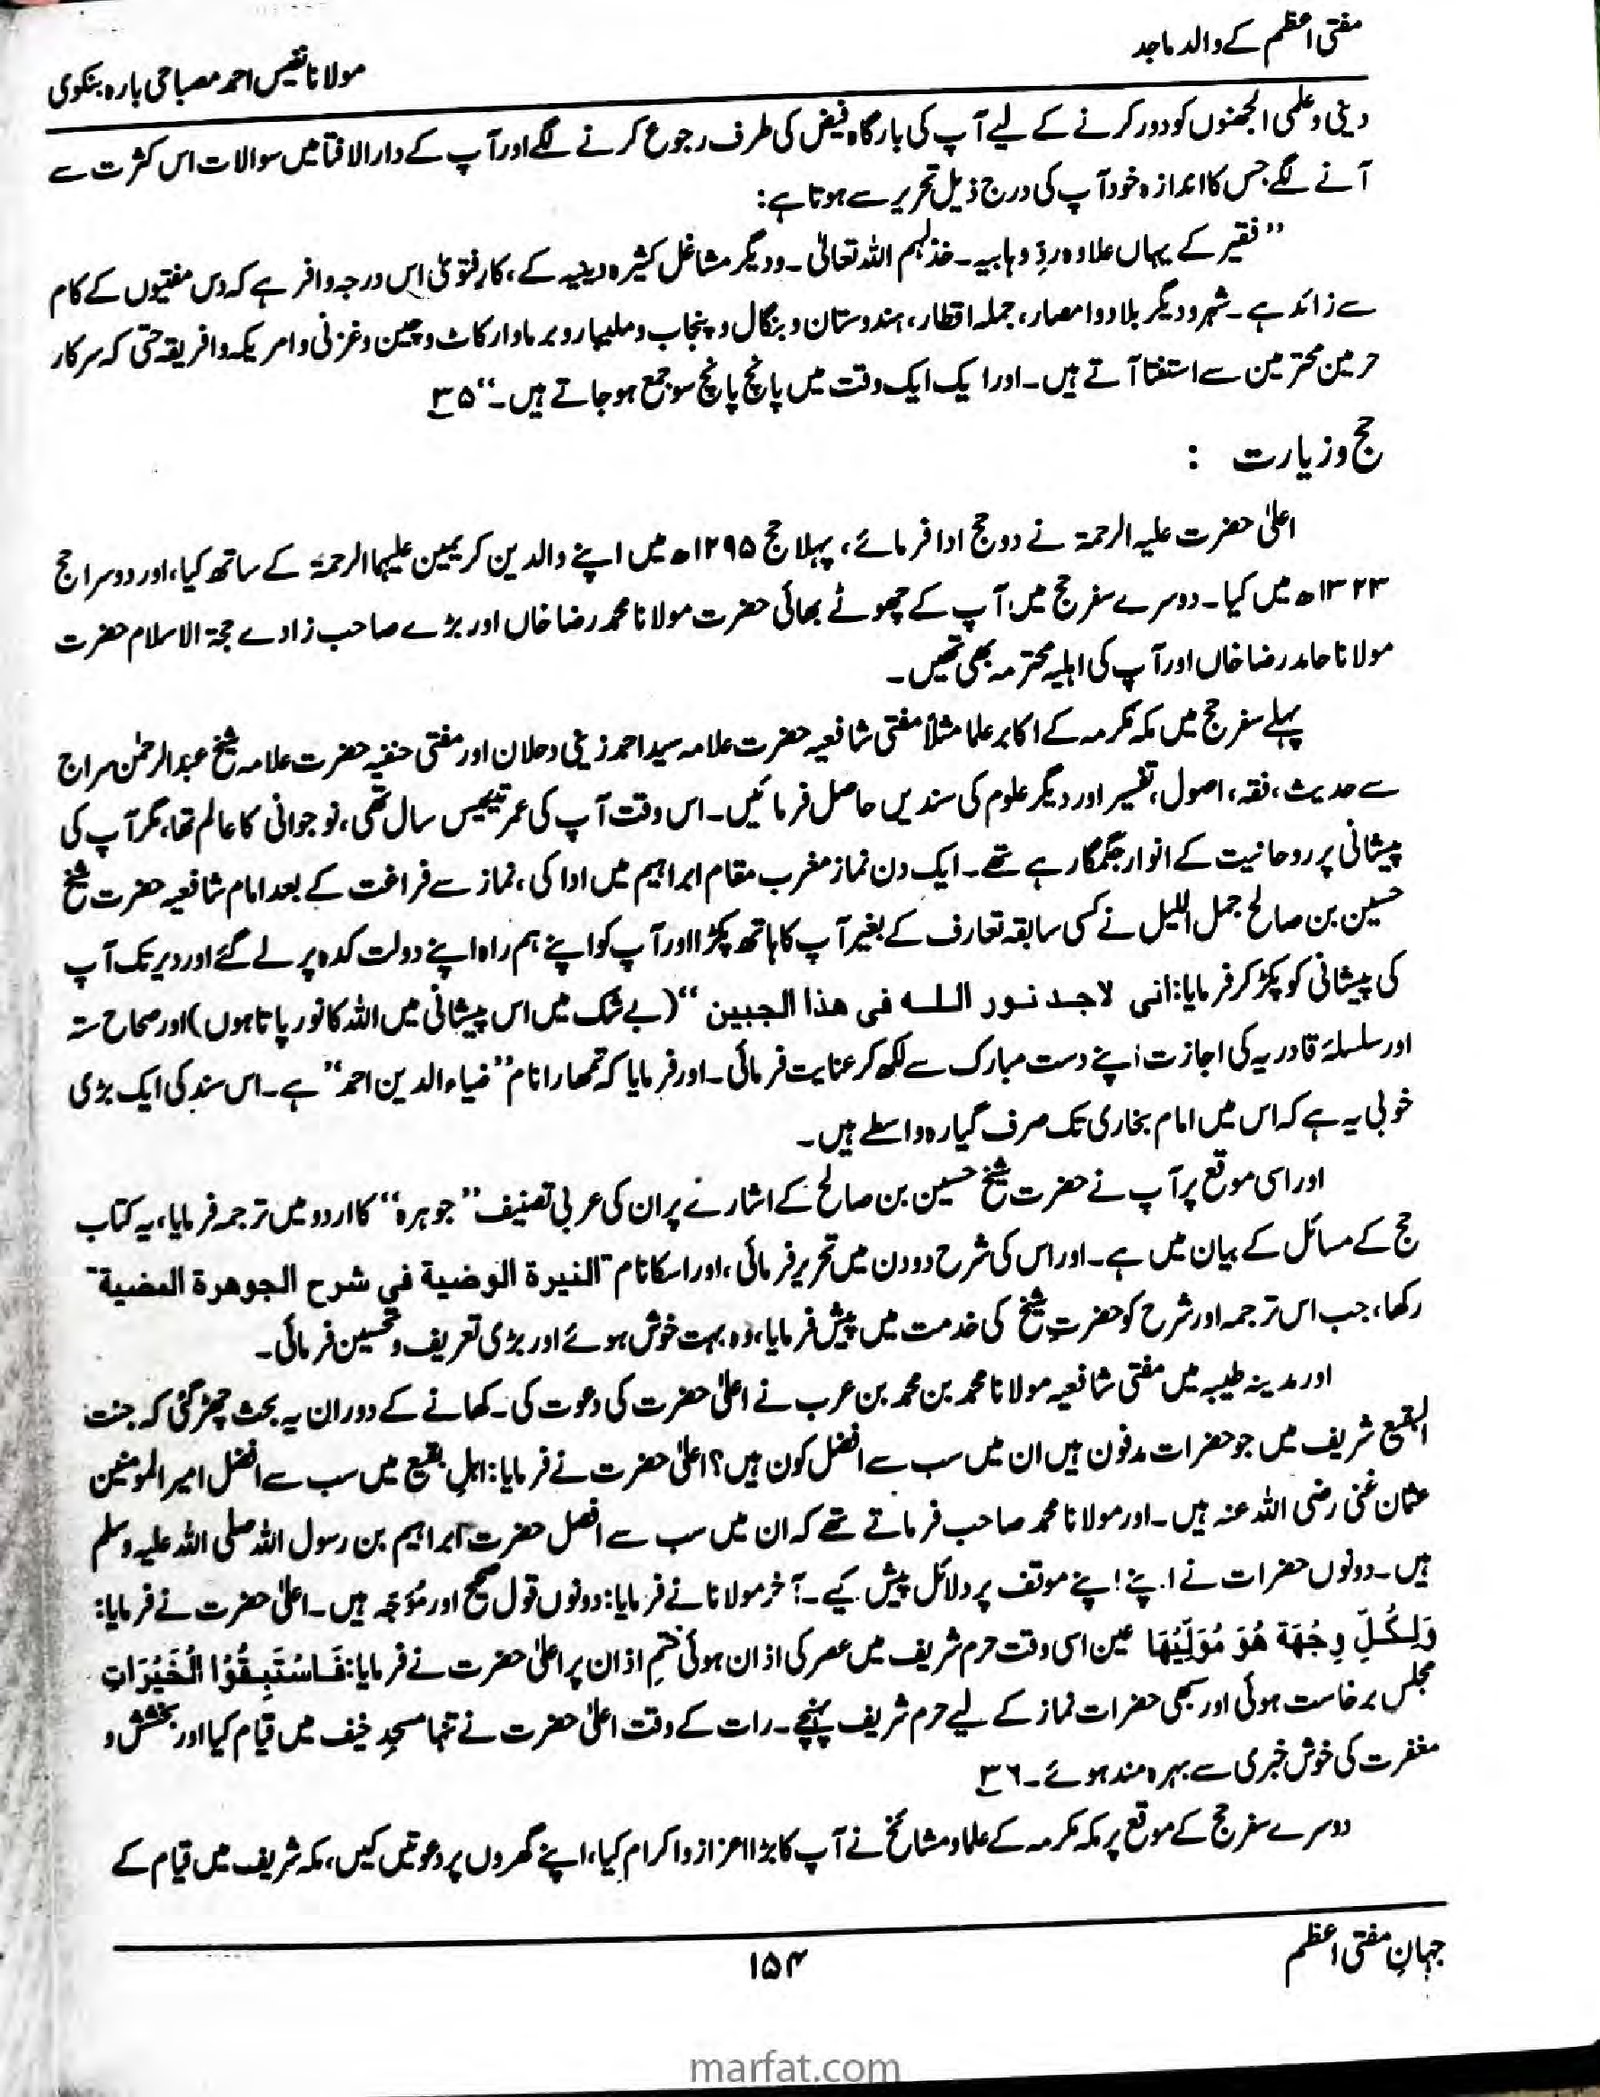 مفتی اعظم کے والد ماجد
مولانا نفیس احمد مصباحی بارہ بنکوی
دینی و علمی الجھنوں کو دور کرنے کے لیے آپ کی بارگاہ فیض کی طرف رجوع کرنے لگے اور آپ کے دارالافتا میں سوالات اس کثرت سے
آنے لگے جس کا اندازہ خود آپ کی درج ذیل تحریر سے ہوتا ہے:
”فقیر کے یہاں علاوہ ردِّ وہابیہ۔ خذلہم اللہ تعالیٰ۔ و دیگر مشاغل کثیرہ دینیہ کے، کارِ فتویٰ اس درجہ وافر ہے کہ دس مفتیوں کے کام
سے زائد ہے۔ شہر و دیگر بلاد و امصار، جملہ اقطار، ہندوستان و بنگال و پنجاب و ملیبار و برما و ارکاٹ و چین و غزنی و امریکہ و افریقہ حتی کہ سرکار
حرمین محترمین سے استفتا آتے ہیں۔ اور ایک ایک وقت میں پانچ پانچ سو جمع ہو جاتے ہیں۔“ ۳۵
حج و زیارت :
اعلیٰ حضرت علیہ الرحمۃ نے دو حج ادا فرمائے، پہلا حج ۱۲۹۵ھ میں اپنے والدین کریمین علیہما الرحمۃ کے ساتھ کیا، اور دوسرا حج
۱۳۲۳ھ میں کیا۔ دوسرے سفر حج میں آپ کے چھوٹے بھائی حضرت مولانا محمد رضا خاں اور بڑے صاحب زادے حجۃ الاسلام حضرت
مولانا حامد رضا خاں اور آپ کی اہلیہ محترمہ بھی تھیں۔
پہلے سفر حج میں مکہ مکرمہ کے اکابر علما مثلاً مفتی شافعیہ حضرت علامہ سید احمد زینی دحلان اور مفتی حنفیہ حضرت علامہ شیخ عبدالرحمٰن سراج
سے حدیث، فقہ، اصول، تفسیر اور دیگر علوم کی سندیں حاصل فرمائیں۔ اس وقت آپ کی عمر تیئیس سال تھی، نوجوانی کا عالم تھا، مگر آپ کی
پیشانی پر روحانیت کے انوار جگمگا رہے تھے۔ ایک دن نماز مغرب مقام ابراہیم میں ادا کی، نماز سے فراغت کے بعد امام شافعیہ حضرت شیخ
حسین بن صالح جمل اللیل نے کسی سابقہ تعارف کے بغیر آپ کا ہاتھ پکڑا اور آپ کو اپنے ہم راہ اپنے دولت کدہ پر لے گئے اور دیر تک آپ
کی پیشانی کو پکڑ کر فرمایا: انی لاجد نور اللہ فی ھذا الجبین “ (بے شک میں اس پیشانی میں اللہ کا نور پاتا ہوں) اور صحاح ستہ
اور سلسلۂ قادریہ کی اجازت اپنے دست مبارک سے لکھ کر عنایت فرمائی۔ اور فرمایا کہ تمھارا نام ”ضیاء الدین احمد“ ہے۔ اس سند کی ایک بڑی
خوبی یہ ہے کہ اس میں امام بخاری تک صرف گیارہ واسطے ہیں۔
اور اسی موقع پر آپ نے حضرت شیخ حسین بن صالح کے اشارے پر ان کی عربی تصنیف ”جوہرہ“ کا اردو میں ترجمہ فرمایا، یہ کتاب
حج کے مسائل کے بیان میں ہے۔ اور اس کی شرح دو دن میں تحریر فرمائی، اور اسکا نام ”النیرة الوضیة فی شرح الجوھرة المضیة“
رکھا، جب اس ترجمہ اور شرح کو حضرتِ شیخ کی خدمت میں پیش فرمایا، وہ بہت خوش ہوئے اور بڑی تعریف و تحسین فرمائی۔
اور مدینہ طیبہ میں مفتی شافعیہ مولانا محمد بن محمد بن عرب نے اعلیٰ حضرت کی دعوت کی۔ کھانے کے دوران یہ بحث چھڑ گئی کہ جنت
البقیع شریف میں جو حضرات مدفون ہیں ان میں سب سے افضل کون ہیں؟ اعلیٰ حضرت نے فرمایا: اہلِ بقیع میں سب سے افضل امیر المومنین
عثمان غنی رضی اللہ عنہ ہیں۔ اور مولانا محمد صاحب فرماتے تھے کہ ان میں سب سے افضل حضرت ابراہیم بن رسول اللہ صلی اللہ علیہ وسلم
ہیں۔ دونوں حضرات نے اپنے اپنے موقف پر دلائل پیش کیے۔ آخر مولانا نے فرمایا: دونوں قول صحیح اور مُوَجَّہ ہیں۔ اعلیٰ حضرت نے فرمایا:
وَلِکُلٍّ وِجْهَة هُوَ مُوَلِّیْهَا عین اسی وقت حرم شریف میں عصر کی اذان ہوئی ختمِ اذان پر اعلیٰ حضرت نے فرمایا: فَاسْتَبِقُوْا الْخَیْرَاتِ
مجلس برخاست ہوئی اور سبھی حضرات نماز کے لیے حرم شریف پہنچے۔ رات کے وقت اعلیٰ حضرت نے تنہا مسجدِ خیف میں قیام کیا اور بخشش و
مغفرت کی خوش خبری سے بہرہ مند ہوئے۔ ۳۶
دوسرے سفر حج کے موقع پر مکہ مکرمہ کے علما و مشائخ نے آپ کا بڑا اعزاز و اکرام کیا، اپنے گھروں پر دعوتیں کیں، مکہ شریف میں قیام کے
جہانِ مفتی اعظم
۱۵۴
marfat.com